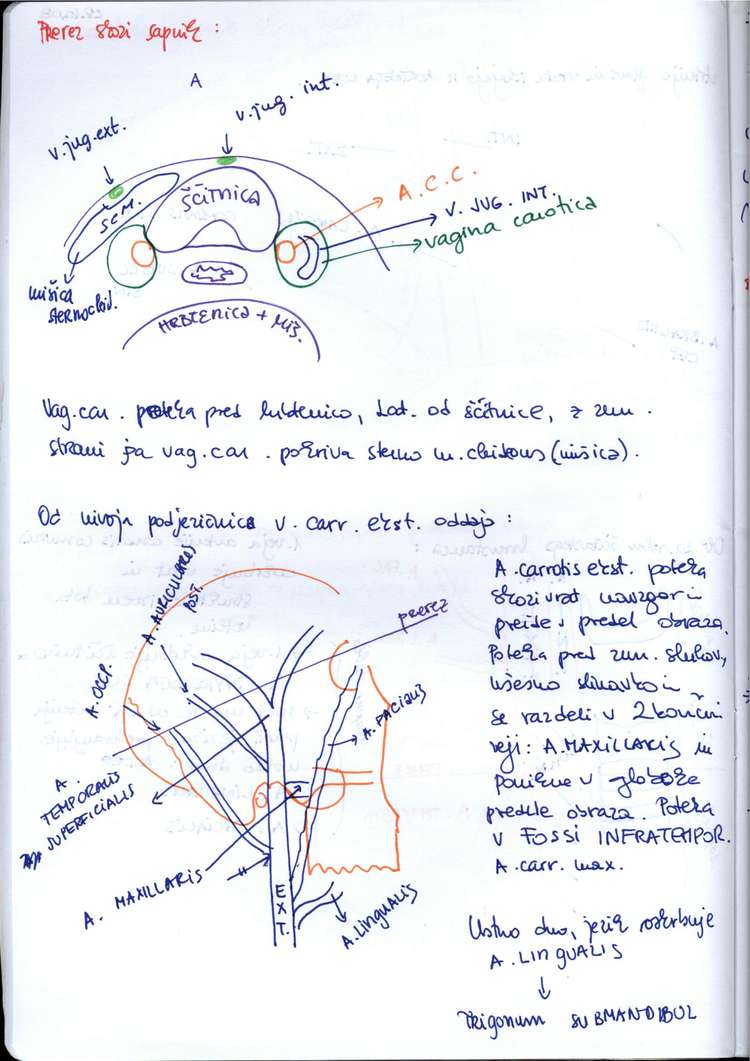 Prerez skozi sapnik :
A
v. jug. ext.
v. jug. int.
ŠČITNICA
SCM.
A. C. C.
V. JUG. INT.
vagina carotica
mišica
sternocleid.
HRBTENICA + MIŠ.
Vag. car. poteka pred hrbtenico, lat. od ščitnice, z zun.
strani pa vag. car. pokriva sterno m. cleidomas (mišica).
Od nivoja podjezičnice v. carr. ekst. oddaja :
A. AURICULARES
POST.
prerez
A. OCCP.
A. FACIALIS
A.
TEMPORALIS
SUPERFICIALIS
A. MAXILLARIS
EXT.
A. LINGUALIS
A. carrotis ekst. poteka
skozi vrat navzgor in
preide v predel obraza.
Poteka pred zun. sluhov,
ušesno slinavko in
se razdeli v 2 končni
veji : A. MAXILLARIS in
ponikne v globoke
predele obraza. Poteka
v FOSSI INFRATEMPOR.
A. carr. max.
Ustno dno, jezik oskrbuje
A. LINGUALIS
Trigonum SUBMANDIBUL